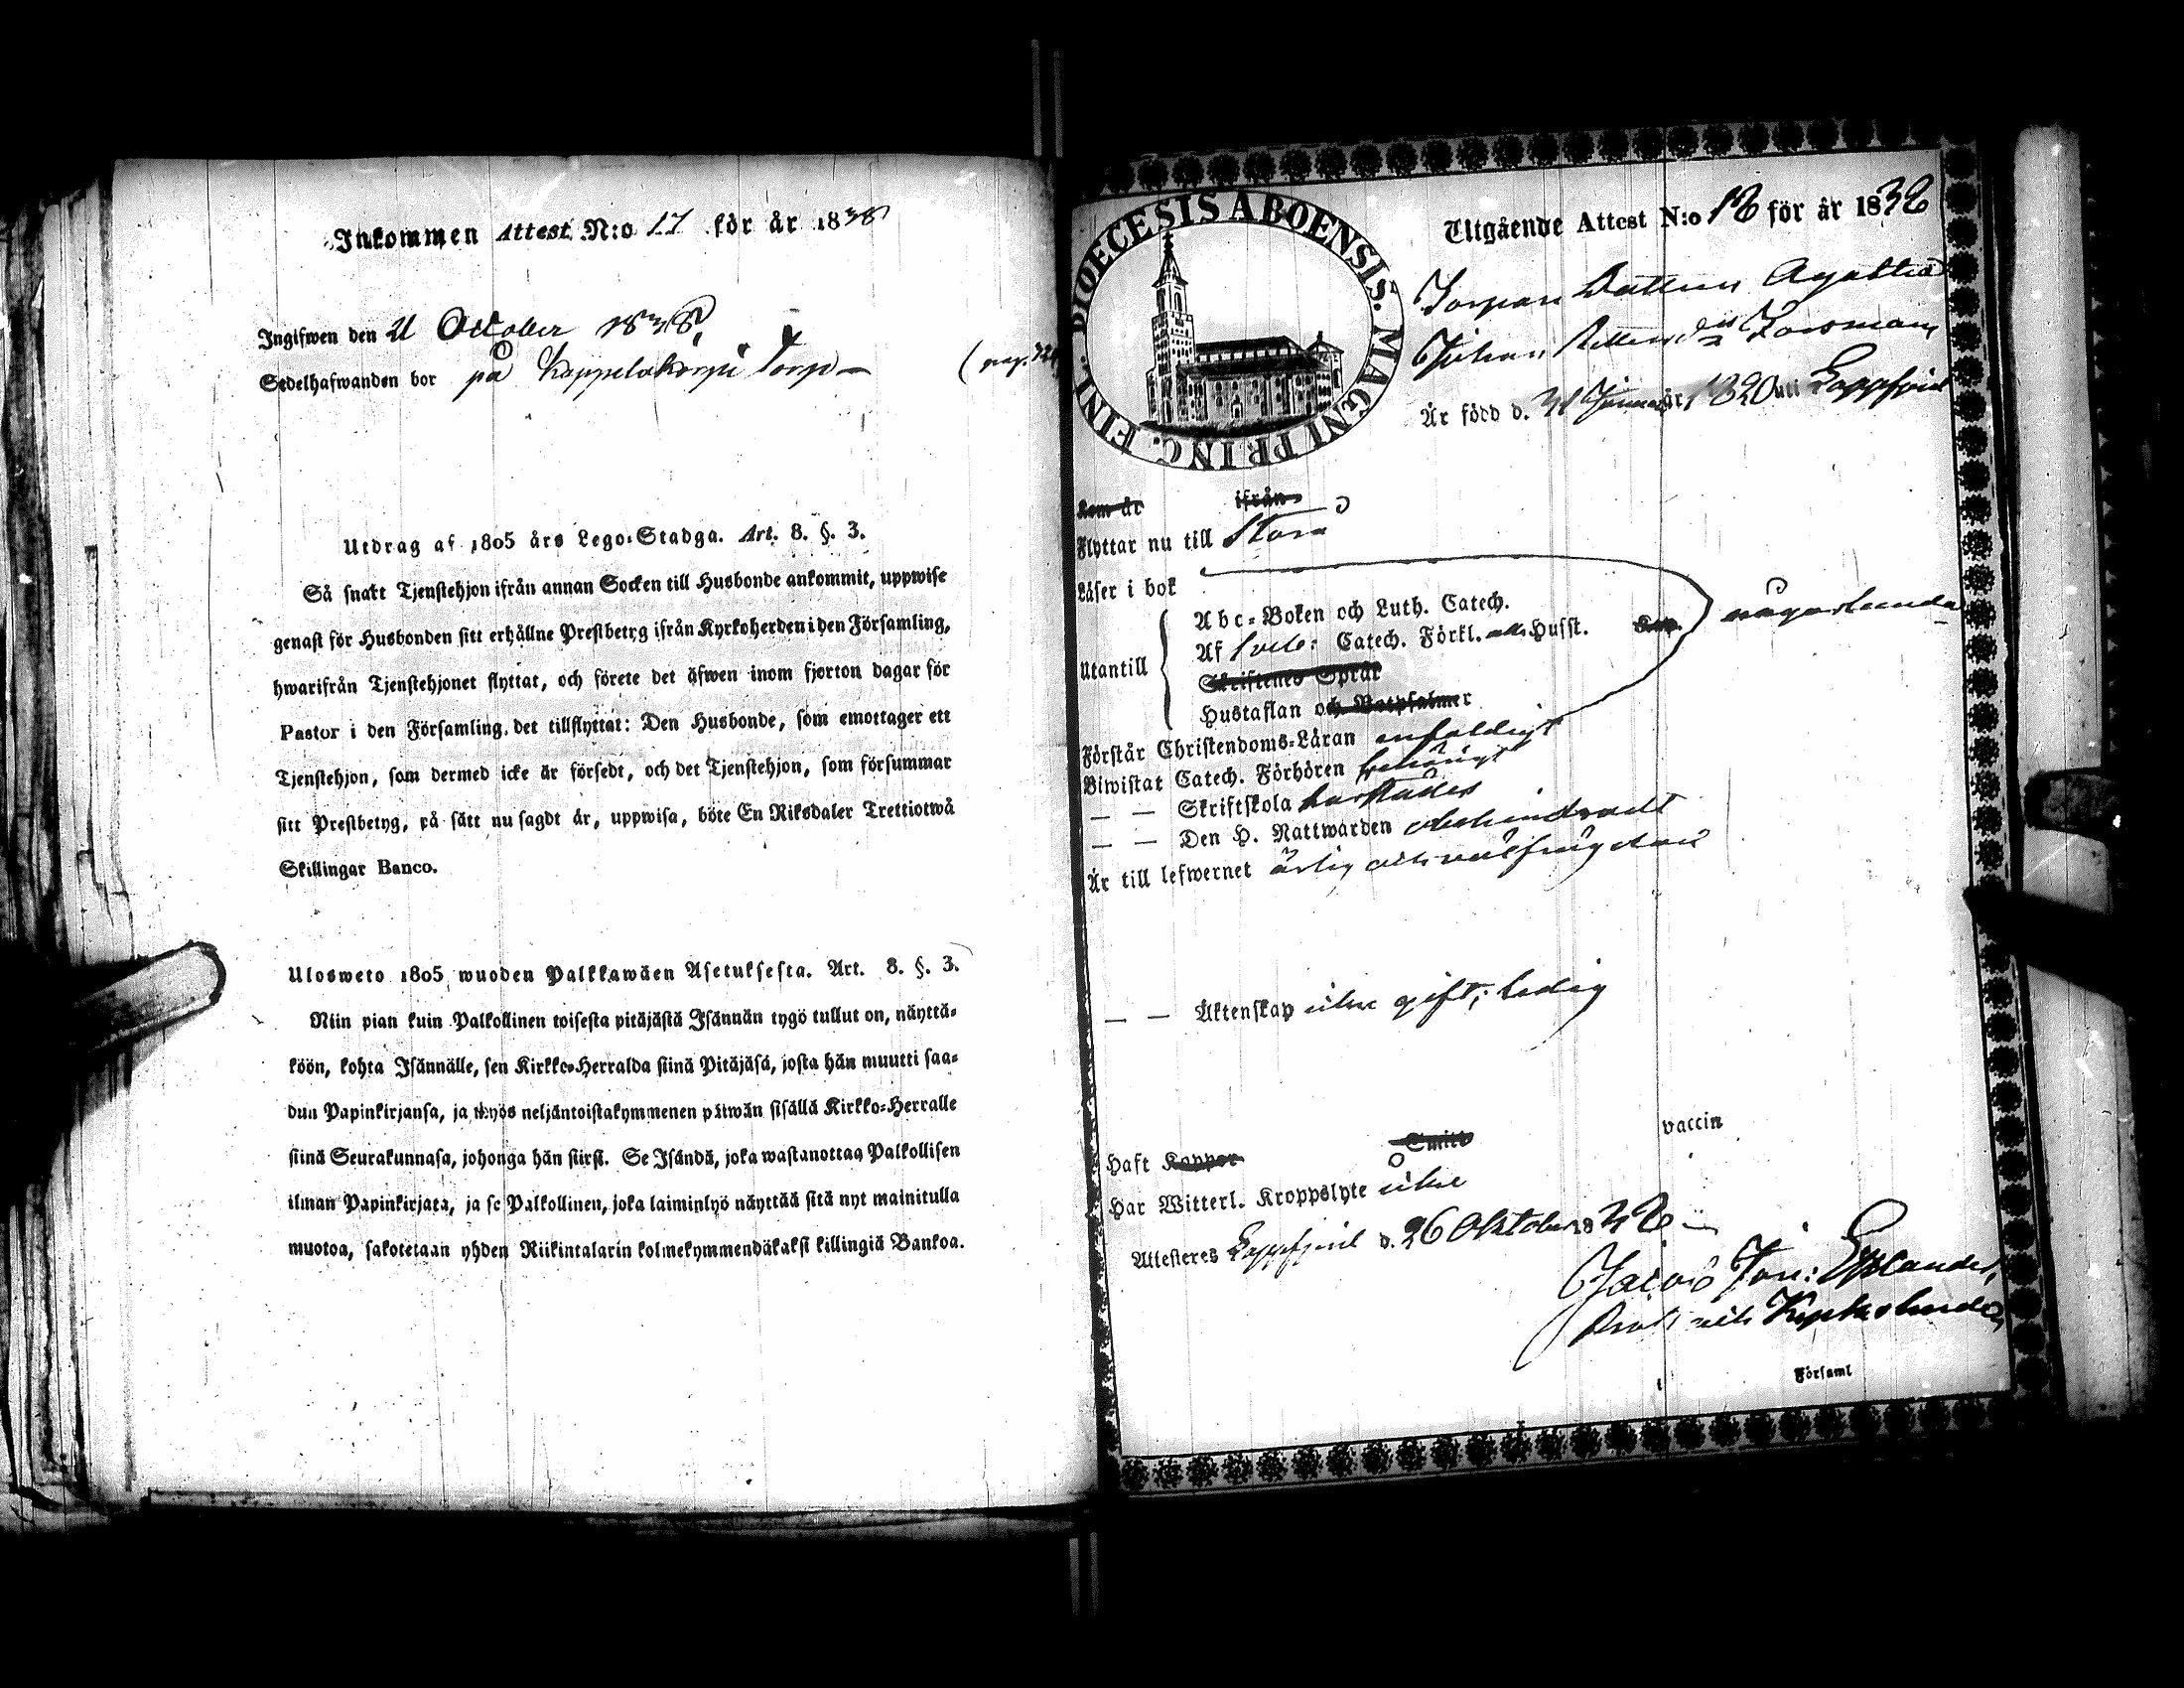 Inkommen Attest N:o 17 för år 1838
Ingifwen den October 1838
Sedelhafwanden bor på Kappelakorpi Torp
Utdrag af 1805 års Lego-Stadga. Art. 8. §. 3.
Så snart Tjenstehjon ifrån annan Socken till Husbonde ankommit, uppwise
genast för Husbonden sitt erhållne Prestbetyg ifrån Kyrkoherden i den Församling,
hwarifrån Tjenstehjonet flyttat, och förete det äfwen inom fjorton dagar för
Pastor i den Församling, det tillflyttat: Den Husbonde, som emottager ett
Tjenstehjon, som dermed icke är försedt, och det Tjenstehjon, som försummar
sitt Prestbetyg, på sätt nu sagdt är, uppwisa, böte En Riksdaler Trettiotwå
Skillingar Banco.
Ulosweto 1805 wuoden Palkkawäen Asetuksesta. Art. 8. §. 3.
Niin pian kuin Palkollinen toisesta pitäjästä Isännän tygö tullut on, näyttä-
köön, kohta Isännälle, sen Kirkko-Herralda siinä Pitäjäsä, josta hän muutti saa-
dun Papinkirjansa, ja myös neljäntoistakymmenen päiwän sisällä Kirkko-Herralle
siinä Seurakunnasa, johonga hän siirsi. Se Isändä, joka wastanottaa Palkollisen
ilman Papinkirjata, ja se Palkollinen, joka laiminlyö näyttää sitä nyt mainitulla
muotoa, sakotetaan yhden Riikintalarin kolmekymmendäkaksi killingiä Bankoa.
DIOECESIS ABOENSIS. MAGNI PRINC. FINL.
Utgående Attest N:o 18 för år 1838
Torpare Dottren Agatha
Johans Dotter
Är född d. 31 Januar år 1820 uti Lappfjerd
Kom år ifrån
Flyttar nu till Storå
Läser i bok
Utantill
Abc-Boken och Luth. Catech.
Af Sveb: Catech. Förkl. och Husst. någorlunda
Skriftenes Språk
Hustaflan och Botpsalmer
Förstår Christendoms-Läran enfaldigt
Biwistat Catech. Förhören behörigt
— — Skriftskola
— — Den H. Nattwarden obehindradt
Är till lefwernet ärlig och välfrägdad
— — Äktenskap icke gift; ledig
Haft Koppor vaccin
Har Witterl. Kroppslyte icke
Attesteres Lappfjerd d. 26 Oktober 1838
Jacob Jon: Estlander,
Prost och Kyrkoherde
Församl